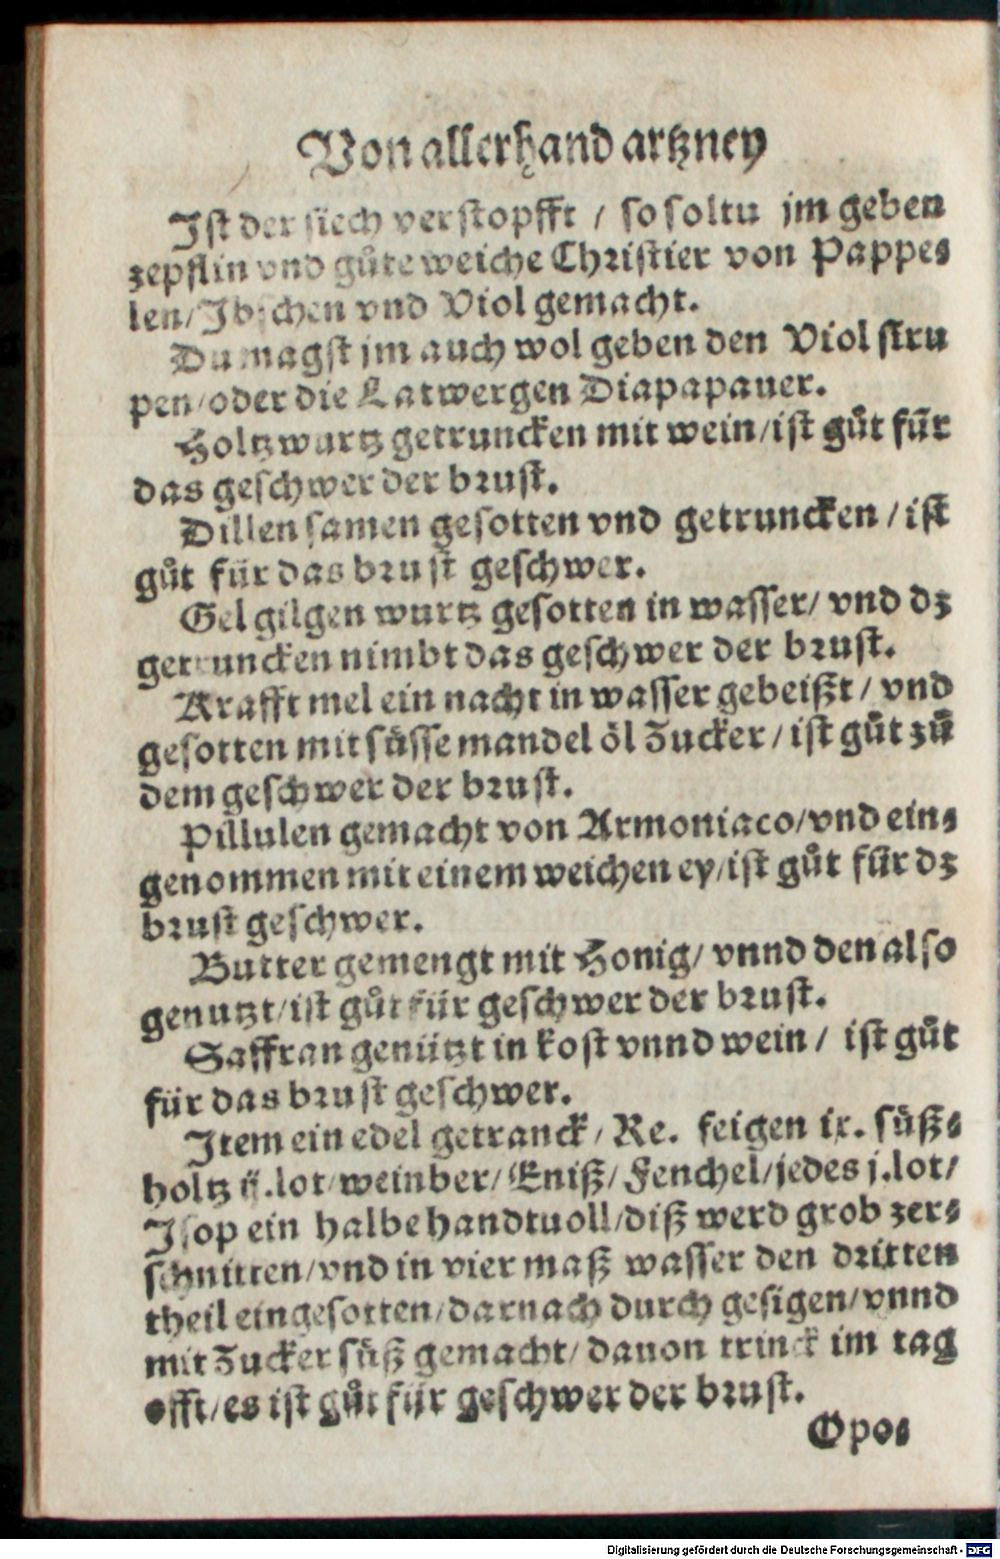 Von allerhand artzney
Ist der siech verstopfft / so soltu jm geben
zepflin vnd gůte weiche Christier von Pappe⸗
len/ Ibschen vnd Viol gemacht.
Du magst jm auch wol geben den Viol siru
pen/ oder die Latwergen Diapapauer.
Holtzwurtz getruncken mit wein/ ist gůt für
das geschwer der brust.
Dillen samen gesotten vnd getruncken / ist
gůt für das brust geschwer.
Gel gilgen wurtz gesotten in wasser/ vnd dz
getruncken nimbt das geschwer der brust.
Krafft mel ein nacht in wasser gebeißt / vnd
gesotten mit süsse mandel öl Zucker / ist gůt zů
dem geschwer der brust.
Pillulen gemacht von Armoniaco/ vnd ein⸗
genommen mit einem weichen ey/ ist gůt für dz
brust geschwer.
Butter gemengt mit Honig/ vnnd den also
genutzt/ ist gůt für geschwer der brust.
Saffran genützt in kost vnnd wein / ist gůt
für das brust geschwer.
Item ein edel getranck / Re. feigen ix. süß⸗
holtz ij.lot/ weinber/ Eniß/ Fenchel/ jedes j.lot/
Isop ein halbe handtuoll/ diß werd grob zer⸗
schnitten/ vnd in vier maß wasser den dritten
theil eingesotten/ darnach durch gesigen/ vnnd
mit Zucker süß gemacht/ dauon trinck im tag
offt/ es ist gůt für geschwer der brust.
Opo⸗
Digitalisierung gefördert durch die Deutsche Forschungsgemeinschaft - DFG